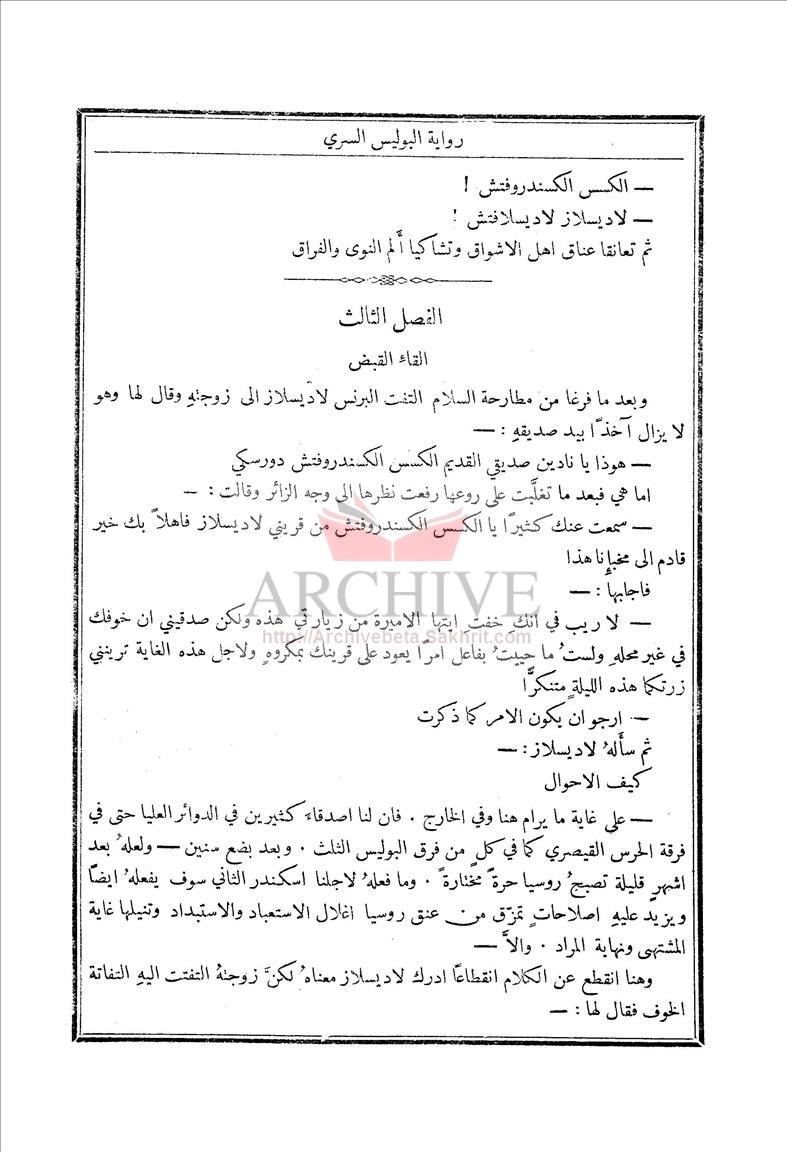 رواية البوليس السري
— الكسس الكسندروفتش !
— لاديسلاز لاديسلافتش !
ثم تعانقا عناق اهل الاشواق وتشاكيا أَلم النوى والفراق
الفصل الثالث
القاء القبض
وبعد ما فرغا من مطارحة السلام التفت البرنس لاديسلاز الى زوجتهِ وقال لها وهو
لا يزال آخذًا بيد صديقهِ : —
— هوذا يا نادين صديقي القديم الكسس الكسندروفتش دورسكي
اما هي فبعد ما تغلَّبت على روعها رفعت نظرها الى وجه الزائر وقالت : —
— سمعت عنك كثيرًا يا الكسس الكسندروفتش من قريني لاديسلاز فاهلاً بك خير
قادم الى مخبإِنا هذا
فاجابها : —
— لا ريب في انكِ خفت ايتها الاميرة من زيارتي هذه ولكن صدقيني ان خوفك
في غير محلهِ ولستُ ما حييتُ بفاعل امرًا يعود على قرينك بمكروهٍ ولاجل هذه الغاية ترينني
زرتكما هذه الليلة متنكرًا
— ارجو ان يكون الامر كما ذكرت
ثم سأَلهُ لاديسلاز : —
كيف الاحوال
— على غاية ما يرام هنا وفي الخارج . فان لنا اصدقاءَ كثيرين في الدوائر العليا حتى في
فرقة الحرس القيصري كما في كلٍ من فرق البوليس الثلث . وبعد بضع سنين — ولعلهُ بعد
اشهرٍ قليلة تصبحُ روسيا حرةً مختارةً . وما فعلهُ لاجلنا اسكندر الثاني سوف يفعلهُ ايضًا
ويزيد عليهِ اصلاحاتٍ تمزّق من عنق روسيا اغلال الاستعباد والاستبداد وتنيلها غاية
المشتهى ونهاية المراد . والاَّ —
وهنا انقطع عن الكلام انقطاعًا ادرك لاديسلاز معناهُ لكنَّ زوجتهُ التفتت اليهِ التفاتة
الخوف فقال لها : —
ARCHIVE
http://Archivebeta.Sakhrit.com